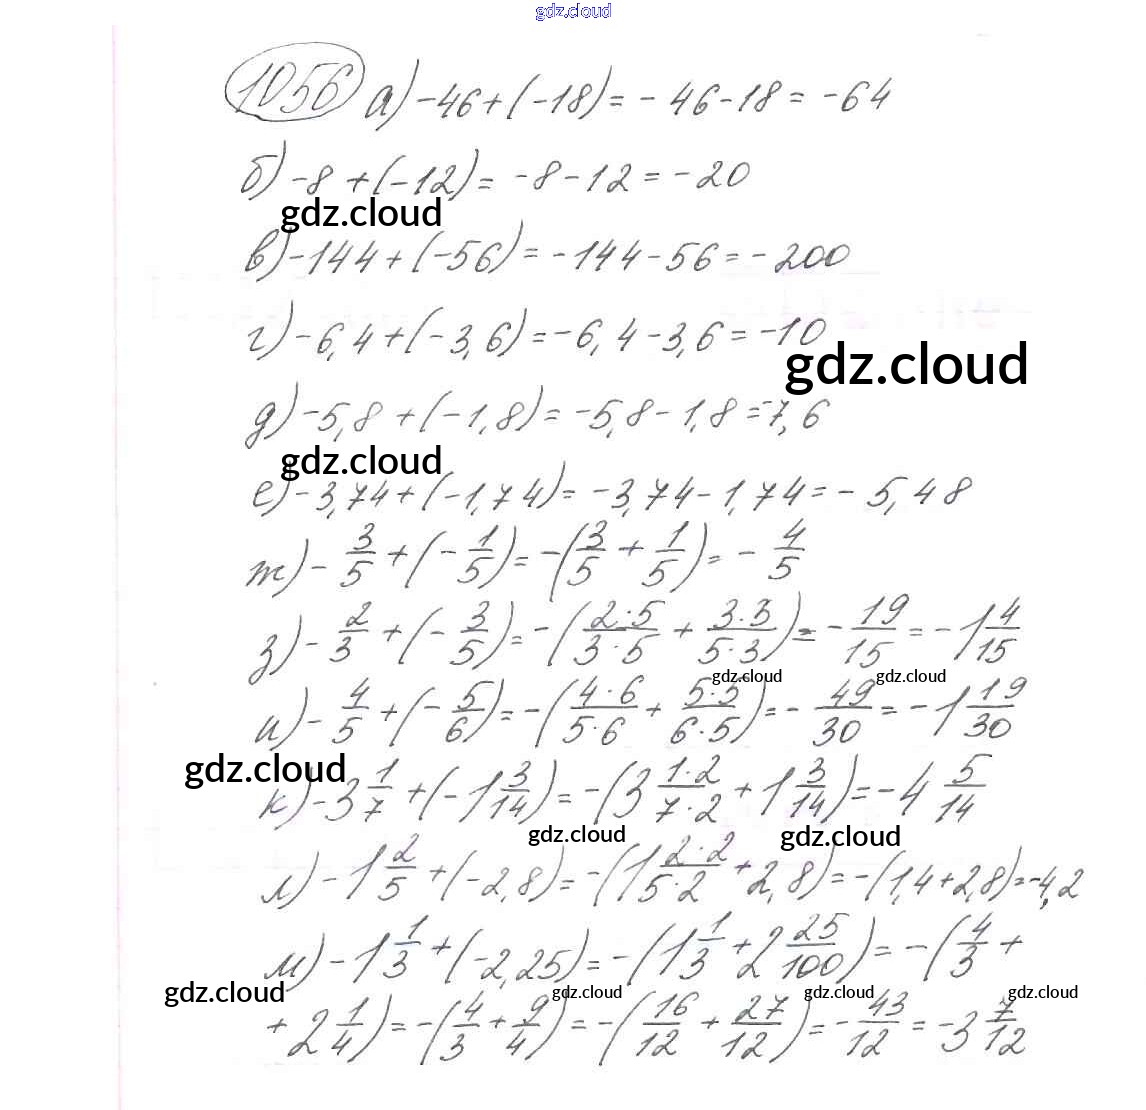 gdz.cloud
1056 а) -46 + (-18) = -46 - 18 = -64
б) -8 + (-12) = -8 - 12 = -20
gdz.cloud
в) -144 + (-56) = -144 - 56 = -200
г) -6,4 + (-3,6) = -6,4 - 3,6 = -10
gdz.cloud
д) -5,8 + (-1,8) = -5,8 - 1,8 = -7,6
gdz.cloud
е) -3,74 + (-1,74) = -3,74 - 1,74 = -5,48
ж) -3/5 + (-1/5) = -(3/5 + 1/5) = -4/5
з) -2/3 + (-3/5) = -(2·5/3·5 + 3·3/5·3) = -19/15 = -1 4/15
gdz.cloud gdz.cloud
и) -4/5 + (-5/6) = -(4·6/5·6 + 5·5/6·5) = -49/30 = -1 19/30
gdz.cloud
к) -3 1/7 + (-1 3/14) = -(3 1·2/7·2 + 1 3/14) = -4 5/14
gdz.cloud gdz.cloud
л) -1 2/5 + (-2,8) = -(1 2·2/5·2 + 2,8) = -(1,4 + 2,8) = -4,2
м) -1 1/3 + (-2,25) = -(1 1/3 + 2 25/100) = -(4/3 +
gdz.cloud gdz.cloud gdz.cloud gdz.cloud
+ 2 1/4) = -(4/3 + 9/4) = -(16/12 + 27/12) = -43/12 = -3 7/12